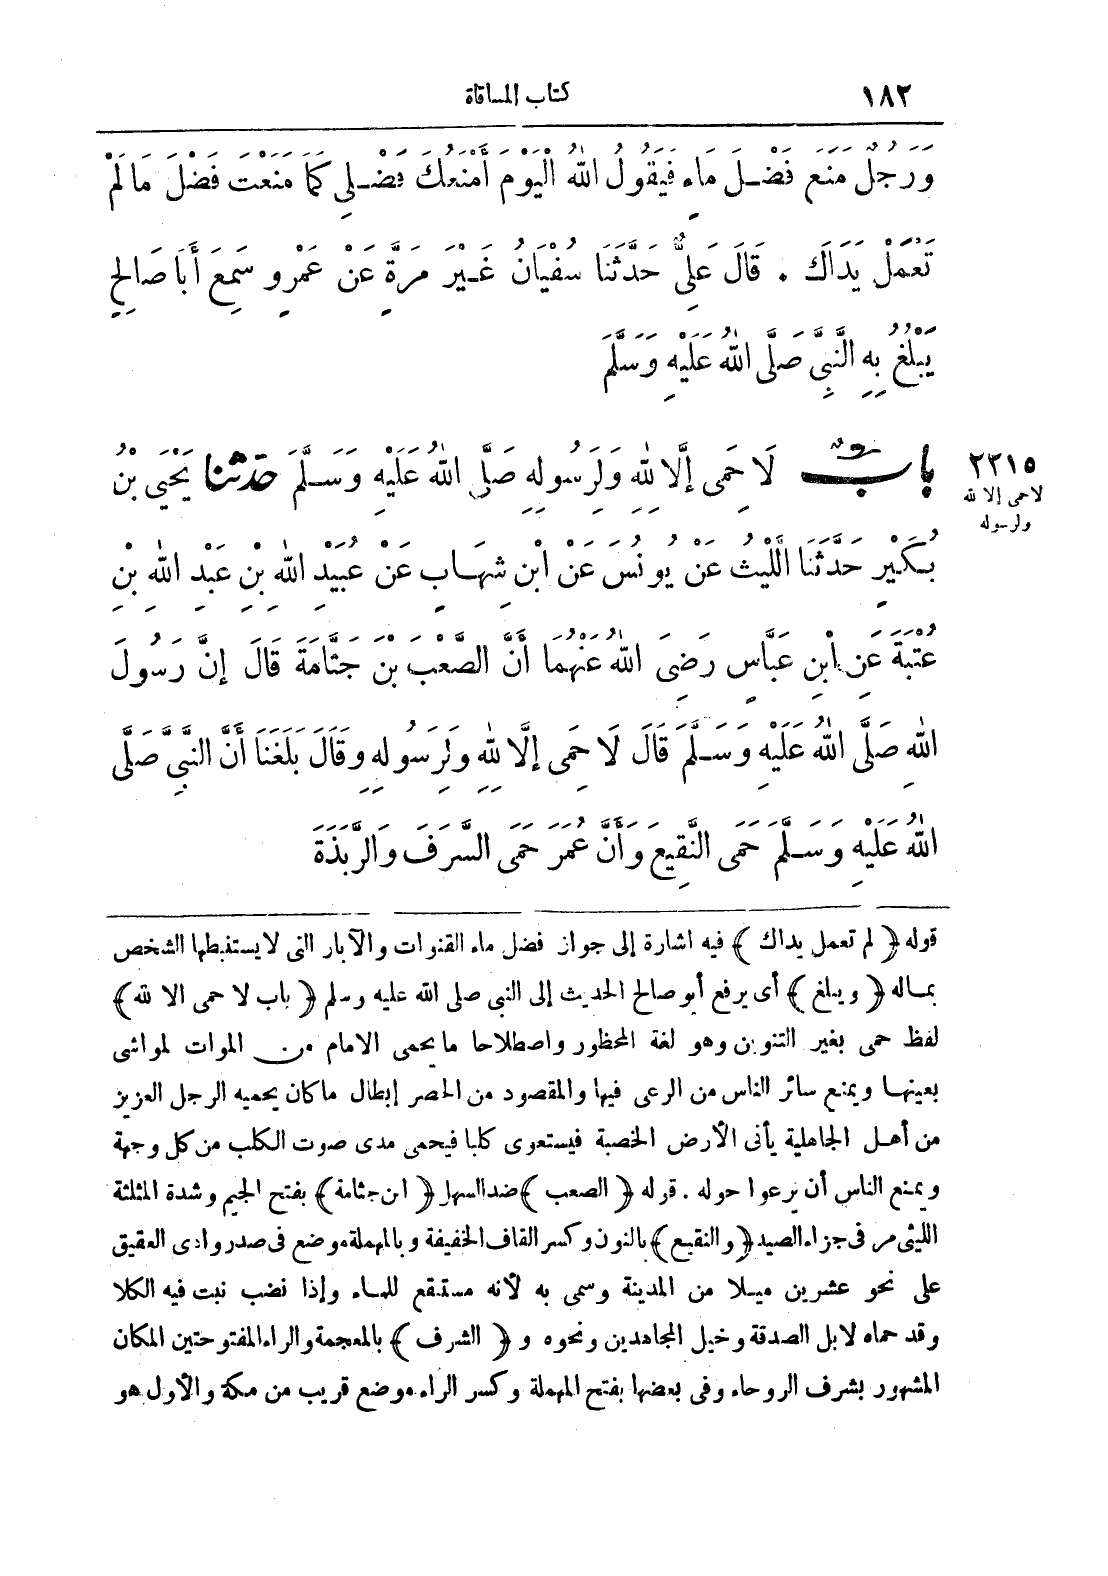 ١٨٢ كتاب المساقاة
وَرَجُلٌ مَنَعَ فَضْلَ مَاءٍ فَيَقُولُ اللهُ الْيَوْمَ أَمْنَعُكَ فَضْلِي كَمَا مَنَعْتَ فَضْلَ مَا لَمْ
تَعْمَلْ يَدَاكَ . قَالَ عَلِيٌّ حَدَّثَنَا سُفْيَانُ غَيْرَ مَرَّةٍ عَنْ عَمْرٍو سَمِعَ أَبَا صَالِحٍ
يَبْلُغُ بِهِ النَّبِيَّ صَلَّى اللهُ عَلَيْهِ وَسَلَّمَ
٢٢١٥
لاحمى إلا لله
ولرسوله
بابٌ لَا حِمَى إِلَّا لِلهِ وَلِرَسُولِهِ صَلَّى اللهُ عَلَيْهِ وَسَلَّمَ حدثنا يَحْيَى بْنُ
بُكَيْرٍ حَدَّثَنَا الَّلَيْثُ عَنْ يُونُسَ عَنْ ابْنِ شِهَابٍ عَنْ عُبَيْدِ اللهِ بْنِ عَبْدِ اللهِ بْنِ
عُتْبَةَ عَنِ ابْنِ عَبَّاسٍ رَضِيَ اللهُ عَنْهُمَا أَنَّ الصَّعْبَ بْنَ جَثَّامَةَ قَالَ إِنَّ رَسُولَ
اللهِ صَلَّى اللهُ عَلَيْهِ وَسَلَّمَ قَالَ لَا حِمَى إِلَّا لِلهِ وَلِرَسُولِهِ وَقَالَ بَلَغَنَا أَنَّ النَّبِيَّ صَلَّى
اللهُ عَلَيْهِ وَسَلَّمَ حَمَى النَّقِيعَ وَأَنَّ عُمَرَ حَمَى السَّرَفَ وَالرَّبَذَةَ
قوله ﴿لم تعمل يداك﴾ فيه اشارة إلى جواز فضل ماء القنوات والآبار التى لا يستنبطها الشخص
بماله ﴿ويبلغ﴾ أى يرفع أبو صالح الحديث إلى النبى صلى الله عليه وسلم ﴿باب لا حمى الا لله﴾
لفظ حمى بغير التنوين وهو لغة المحظور واصطلاحا ما يحمى الامام من الموات لمواشى
بعينها ويمنع سائر الناس من الرعى فيها والمقصود من الحصر إبطال ما كان يحميه الرجل العزيز
من أهل الجاهلية يأتى الأرض الخصبة فيستعوى كلبا فيحمى مدى صوت الكلب من كل وجهة
ويمنع الناس أن يرعوا حوله . قوله ﴿الصعب﴾ ضد السهل ﴿ابن جثامة﴾ بفتح الجيم وشدة المثلثة
الليثى مر فى جزاء الصيد ﴿والنقيع﴾ بالنون وكسر القاف الخفيفة وبالمهملة موضع فى صدر وادى العقيق
على نحو عشرين ميلا من المدينة وسمى به لأنه مستنقع للماء وإذا نضب نبت فيه الكلا
وقد حماه لابل الصدقة وخيل المجاهدين ونحوه و ﴿الشرف﴾ بالمعجمة والراء المفتوحتين المكان
المشهور بشرف الروحاء وفى بعضها بفتح المهملة وكسر الراء موضع قريب من مكة والأول هو